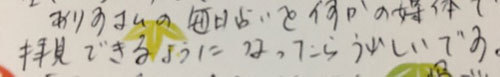 ありすさんの毎日占いを何かの媒体で
拝見できるようになったらうれしいです。